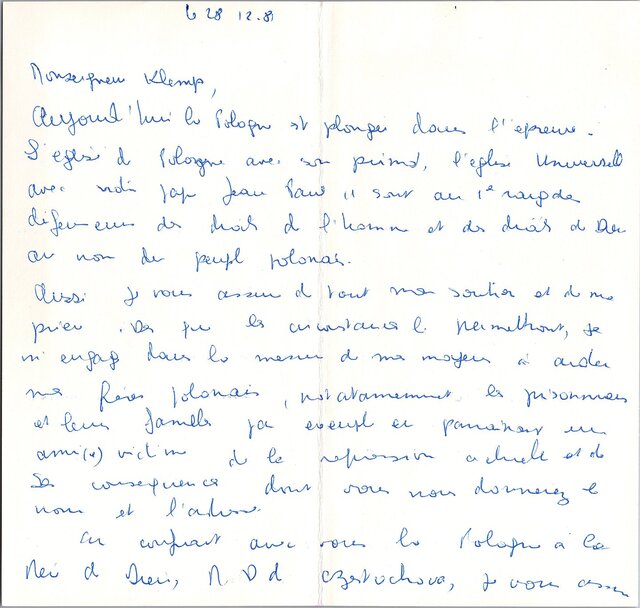 le 28 12.81
Monseigneur Klemp,
Aujourd'hui la Pologne est plongée dans l'épreuve.
L'église de Pologne avec son primat, l'église Universelle
avec notre pape Jean Paul II sont au 1e rang des
défenseurs des droits de l'homme et des droits de Dieu
au nom du peuple polonais.
Aussi je vous assure de tout mon soutien et de ma
prière. Dès que les circonstances le permettront, je
m'engage dans la mesure de mes moyens à aider
mes frères polonais, notatamement les prisonniers
et leurs familles par exemple en parrainant un
ami(e) victime de la répression actuelle et de
ses conséquences dont vous nous donnerez le
nom et l'adresse.
En confiant avec vous la Pologne à la
Mère de Dieu, N D de Czestochova, je vous assure